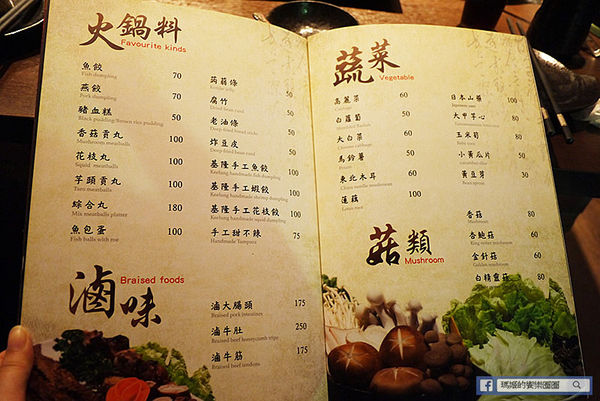 火鍋料
Favourite kinds
魚餃 70
Fish dumpling
燕餃 70
Pork dumpling
豬血糕 50
Black pudding/Steam rice pudding
香菇貢丸 100
Mushroom meatballs
花枝丸 100
Squid meatballs
芋頭貢丸 100
Taro meatballs
綜合丸 180
Mix meatballs platter
魚包蛋 100
Fish balls with roe
蒟蒻條 50
Konjac jelly
腐竹 50
Dried bean curd
老油條 50
Deep fried bread sticks
炸豆皮 50
Deep fried bean curd
基隆手工魚餃 100
Keelung handmade fish dumpling
基隆手工蝦餃 100
Keelung handmade shrimp dumpling
基隆手工花枝餃 100
Keelung handmade squid dumpling
手工甜不辣 75
Handmade Tempura
滷味
Braised foods
滷大腸頭 175
Braised pork intestines
滷牛肚 250
Braised beef honeycomb tripe
滷牛筋 175
Braised beef tendons
蔬菜
Vegetable
高麗菜 60
Cabbage
白蘿蔔 50
大白菜 60
Chinese cabbage
馬鈴薯 50
Potato
東北木耳 60
蓮藕 60
Lotus root
日本山藥 100
Japanese yam
大甲芋心 80
玉米筍 80
Baby corn
小黃瓜片 50
cucumber slice
黃豆芽 50
Bean sprout
菇類
Mushroom
香菇 80
Mushroom
杏鮑菇 60
King oyster mushroom
金針菇 60
Golden mushroom
白精靈菇 80
瑪姬的饗樂園圈